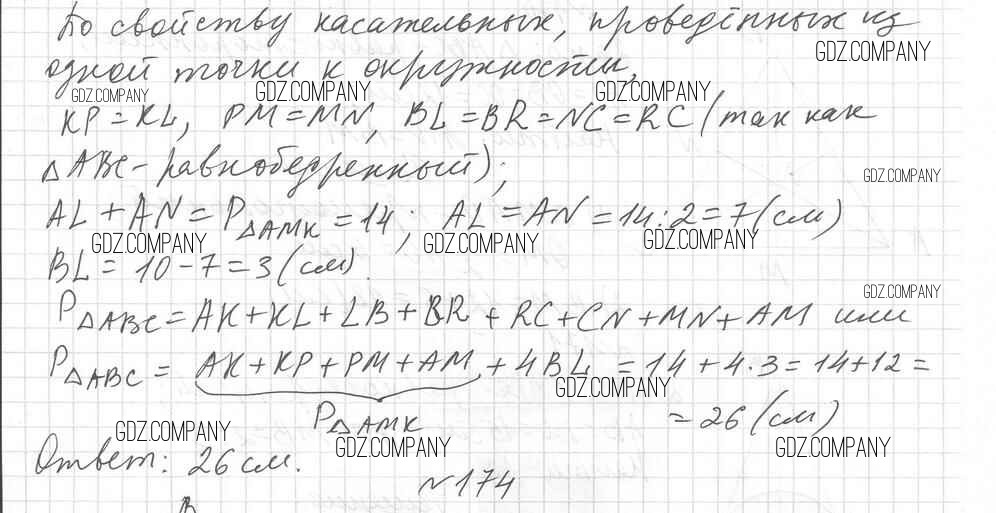 По свойству касательных, проведённых из
GDZ.COMPANY
одной точки к окружности,
GDZ.COMPANY GDZ.COMPANY GDZ.COMPANY
KP = KL, PM = MN, BL = BR = NC = RC (так как
△ABC - равнобедренный);
GDZ.COMPANY
AL + AN = P△AMK = 14; AL = AN = 14 : 2 = 7 (см)
GDZ.COMPANY GDZ.COMPANY GDZ.COMPANY
BL = 10 - 7 = 3 (см).
GDZ.COMPANY
P△ABC = AK + KL + LB + BR + RC + CN + MN + AM или
P△ABC = AK + KP + PM + AM + 4BL = 14 + 4 · 3 = 14 + 12 =
GDZ.COMPANY
P△AMK = 26 (см)
GDZ.COMPANY GDZ.COMPANY GDZ.COMPANY
Ответ: 26 см.
№174
B